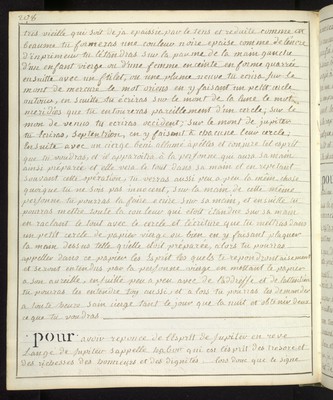 208
tres vieille qui soit deja epaissie par le tems et reduite comme en
beaume tu formeras une couleur noire epaisse comme de l'encre
d'imprimeur tu l'etendras sur la paume de la main gauche
d'un enfant vierge ou d'une femme enceinte en forme quarrée
ensuitte avec un filet, ou une plume neuve tu ecrira sur le
mont de mercure le mot oriens en y faisant un petit cercle
autour, en suitte tu écriras sur le mont de la lune le mot
meridies que tu entoureras pareillement d'un cercle, sur le
mon de venus tu ecriras occident, sur le mont de jupiter
tu ecriras, septentrion, en y faisant à chacune leur cercle,
Ensuitte avec un cierge beni allumé apelles et conjure tel esprit
que tu voudras, et il apparaitra à la personne qui aura sa main
ainsi preparée et elle vera le tout dans sa main et en repetant
souvant cette operation, tu verras aussi peu a peu la même chose
quoique tu ne sois pas innocent, sur la main de cette même
personne tu pourras la faire ecrire sur sa main, et ensuitte tu
pourras mettre toute la couleur qui etoit etandue sur sa main
en raclant le tout avec le cercle et l'ecriture que tu mettras dans
un petit cercle de papier vierge ou bien en y faisant plaquer
la main dessus telle qu'elle etoit preparée, alors tu pourras
appeller dans ce papier les Esprit les quels te repondront aisement
et seront entendus par la personne vierge en mettant le papier
a son oreille, ensuitte peu a peu avec de l'addresse et de l'attention
tu pourras les entendre toy aussi, et a lors tu pourras les demander
a toute heure sain ainge tant le jour que la nuit et obtenir d'eux
ce que tu voudras
pour avoir reponce de l'Esprit de Jupiter en reve
L'ange de Jupiter s'appelle qui est l'esprit des tresors, et
des richesses des honneurs et des dignités lors donc que le signe